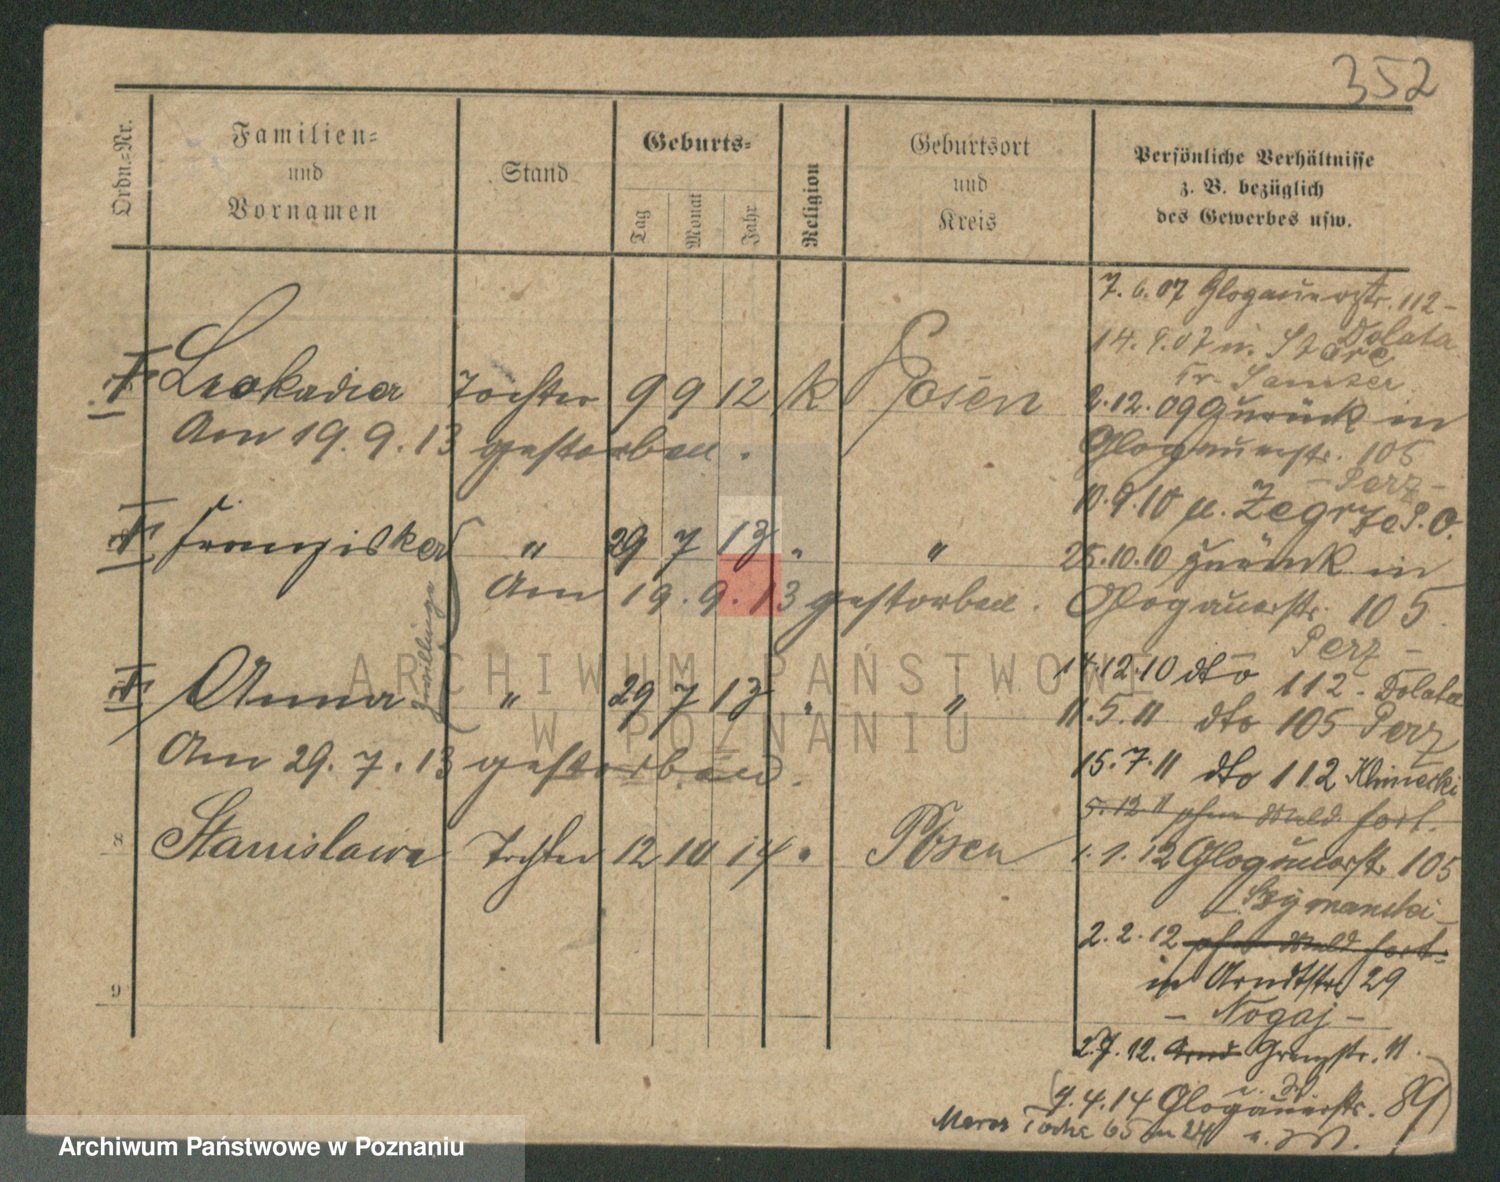 352
Ordn.-Nr.
Familien-
und
Vornamen
Stand
Geburts-
Tag
Monat
Jahr
Religion
Geburtsort
und
Kreis
Persönliche Verhältnisse
z. B. bezüglich
des Gewerbes usw.
Leokadia Tochter 9 9 12 K Posen
Am 19. 9. 13 gestorben.
Franziska " 29 7 13 " "
Am 19. 9. 13 gestorben.
Zwillinge
Anna " 29 7 13 " "
Am 29. 7. 13 gestorben.
8 Stanislawa Tochter 12 10 14 " Posen
9
7. 6. 07 Glogauerstr. 112 -
Dolata
14. 9. 07 n.
Kr. Samter
2. 12. 09 Zurück in
Glogauerstr. 105
- Perz -
10. 9. 10 n. Zegrze P. O.
25. 10. 10 zurück in
Glogauerstr. 105
Perz -
14. 12. 10 dto 112 - Dolata
11. 5. 11 dto 105 Perz
15. 7. 11 dto 112 Klimecki
5. 12 11 ohne Meld. fort.
1. 1. 12 Glogauerstr. 105
- Szymanski -
2. 2. 12 ohne Meld. fort.
in Arndtstr. 29
- Nogaj -
2. 7. 12. Grenzstr. 11.
9. 4. 14 Glogauerstr. 89
ARCHIWUM PAŃSTWOWE
W POZNANIU
Archiwum Państwowe w Poznaniu